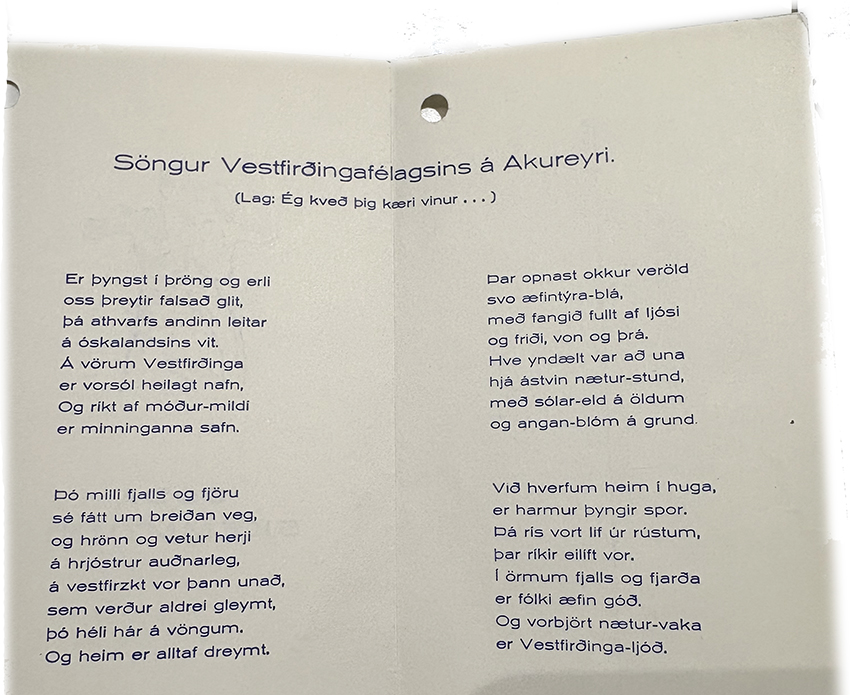 Söngur Vestfirðingafélagsins á Akureyri.
(Lag: Ég kveð þig kæri vinur . . . )
Er þyngst í þröng og erli
oss þreytir falsað glit,
þá athvarfs andinn leitar
á óskalandsins vit.
Á vörum Vestfirðinga
er vorsól heilagt nafn,
Og ríkt af móður-mildi
er minninganna safn.
Þó milli fjalls og fjöru
sé fátt um breiðan veg,
og hrönn og vetur herji
á hrjóstrur auðnarleg,
á vestfirzkt vor þann unað,
sem verður aldrei gleymt,
þó héli hár á vöngum.
Og heim er alltaf dreymt.
Þar opnast okkur veröld
svo æfintýra-blá,
með fangið fullt af ljósi
og friði, von og þrá.
Hve yndælt var að una
hjá ástvin nætur-stund,
með sólar-eld á öldum
og angan-blóm á grund.
Við hverfum heim í huga,
er harmur þyngir spor.
Þá rís vort líf úr rústum,
þar ríkir eilíft vor.
Í örmum fjalls og fjarða
er fólki æfin góð.
Og vorbjört nætur-vaka
er Vestfirðinga-ljóð.